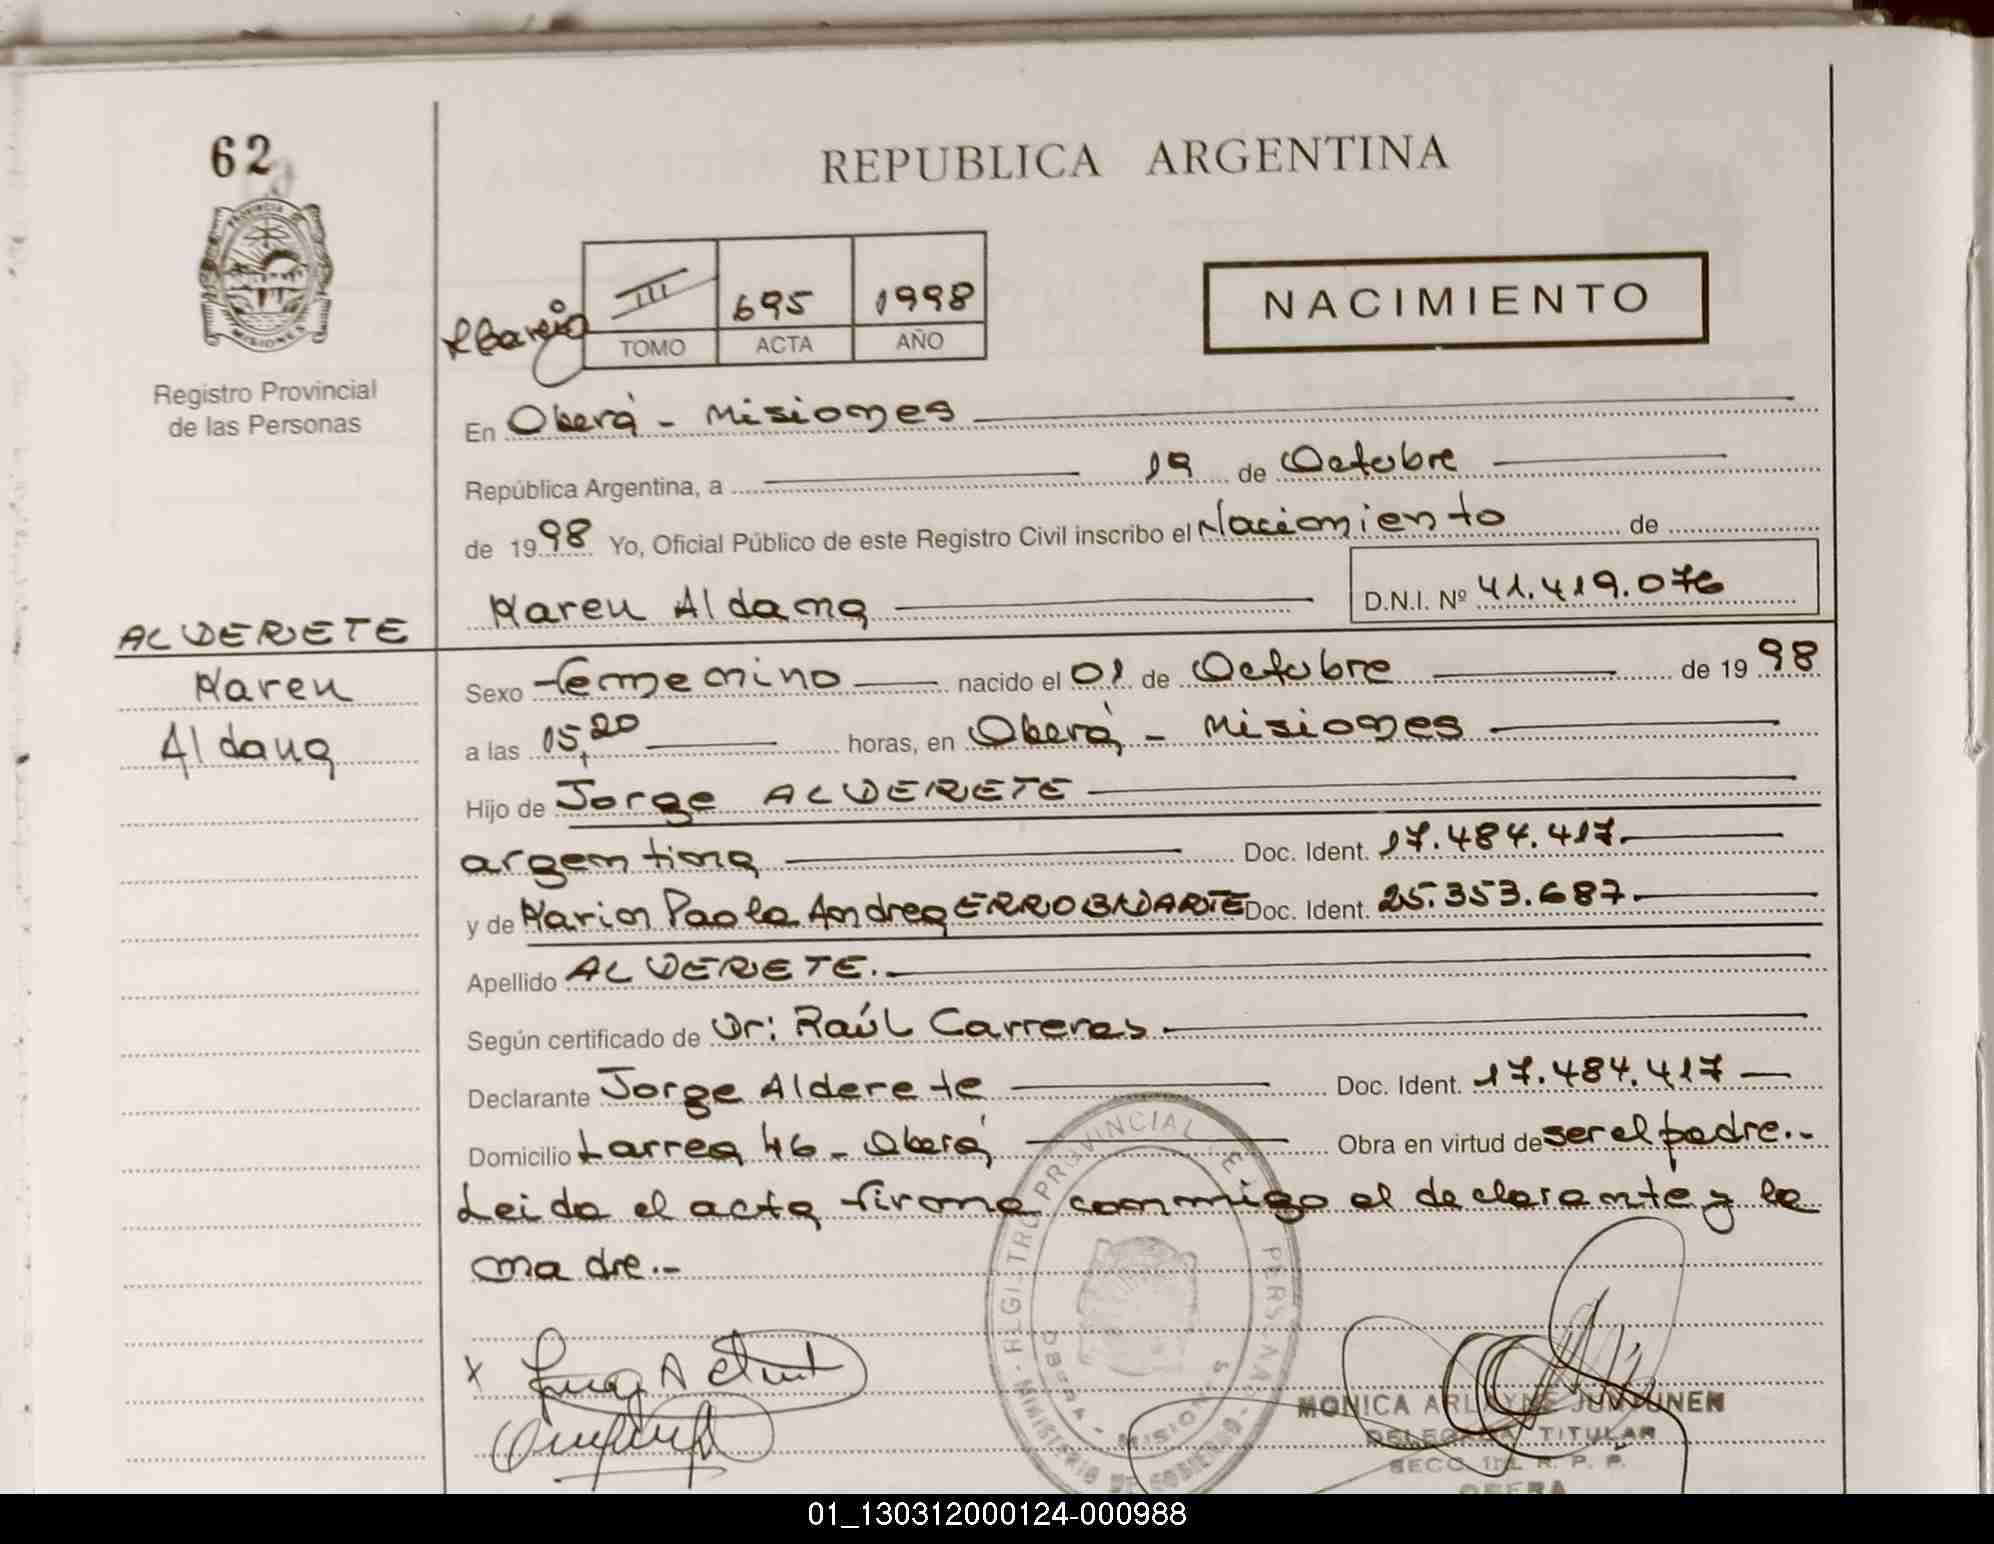 62
REPUBLICA ARGENTINA
PROVINCIA DE
MISIONES
Registro Provincial
de las Personas
III 695 1998
TOMO ACTA AÑO
NACIMIENTO
En Oberá - Misiones
República Argentina, a 19 de Octubre
de 1998 Yo, Oficial Público de este Registro Civil inscribo el Nacimiento de
Karen Aldana D.N.I. Nº 41.419.076
ALDERETE
Karen
Aldana
Sexo femenino nacido el 01 de Octubre de 1998
a las 15,20 horas, en Oberá - Misiones
Hijo de Jorge ALDERETE
argentina Doc. Ident. 17.484.417.
y de Paola Andrea Doc. Ident. 25.353.687.
Apellido ALDERETE.
Según certificado de Dr: Raúl Carreras
Declarante Jorge Alderete Doc. Ident. 17.484.417
Domicilio Larrea 46 - Oberá Obra en virtud de ser el padre.-
Leida el acta firma conmigo el declarante y la
madre.-
REGISTRO PROVINCIAL DE PERSONAS
OBERA - MISIONES
MINISTERIO DE GOBIERNO
MONICA
DELEGADA TITULAR
SECC. 1ra. R. P. P.
OBERA
01_130312000124-000988